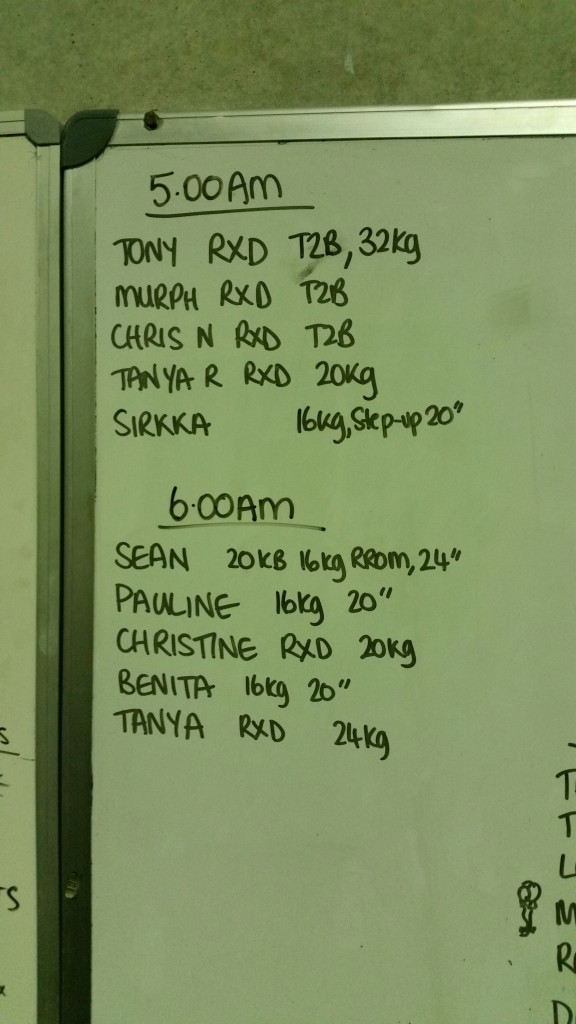 5.00AM
TONY RXD T2B, 32kg
MURPH RXD T2B
CHRIS N RXD T2B
TANYA R RXD 20kg
SIRKKA 16kg, Step-up 20"
6.00AM
SEAN 20KB 16kg RROM, 24"
PAULINE 16kg 20"
CHRISTINE RXD 20kg
BENITA 16kg 20"
TANYA RXD 24kg